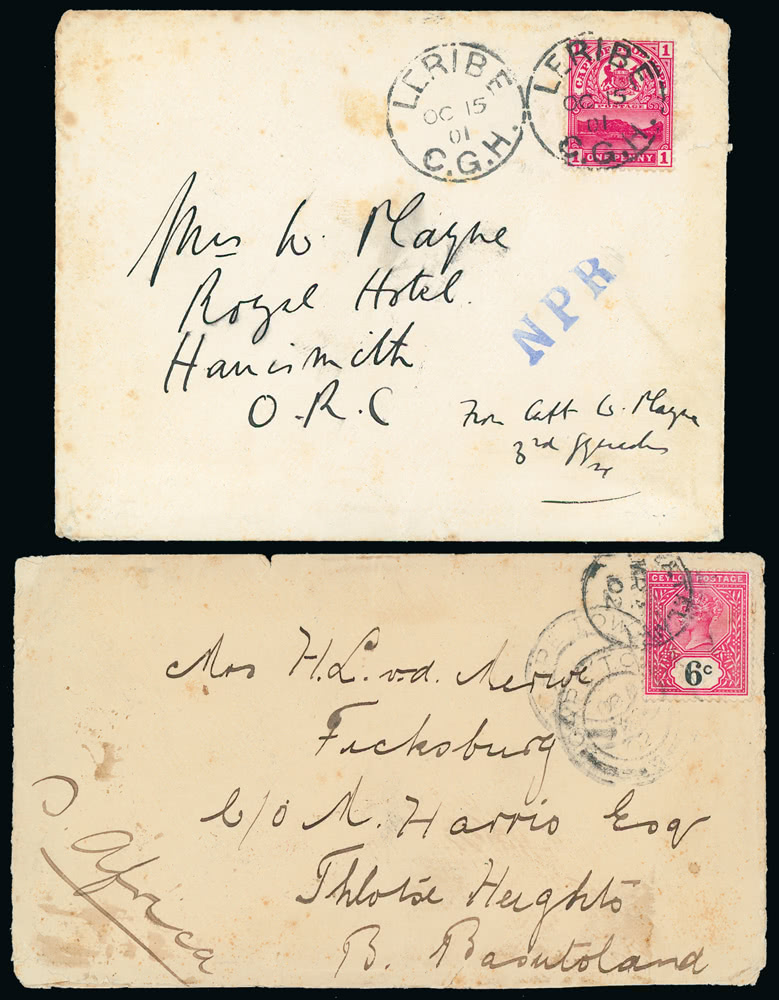 LERIBE
OC 15
01
C.G.H.
LERIBE
OC 15
01
C.G.H.
1 1
CAPE OF GOOD HOPE
POSTAGE
1 ONE PENNY 1
Mrs W. Mayne
Royal Hotel.
Harrismith
O.R.C
NPR
From Capt W. Mayne
3rd
CEYLON POSTAGE
6c
02
Mrs H.L. v.d. Merwe
Ficksburg
C/o M. Harris Esq
Thlotse Heights
B. Basutoland
S. Africa